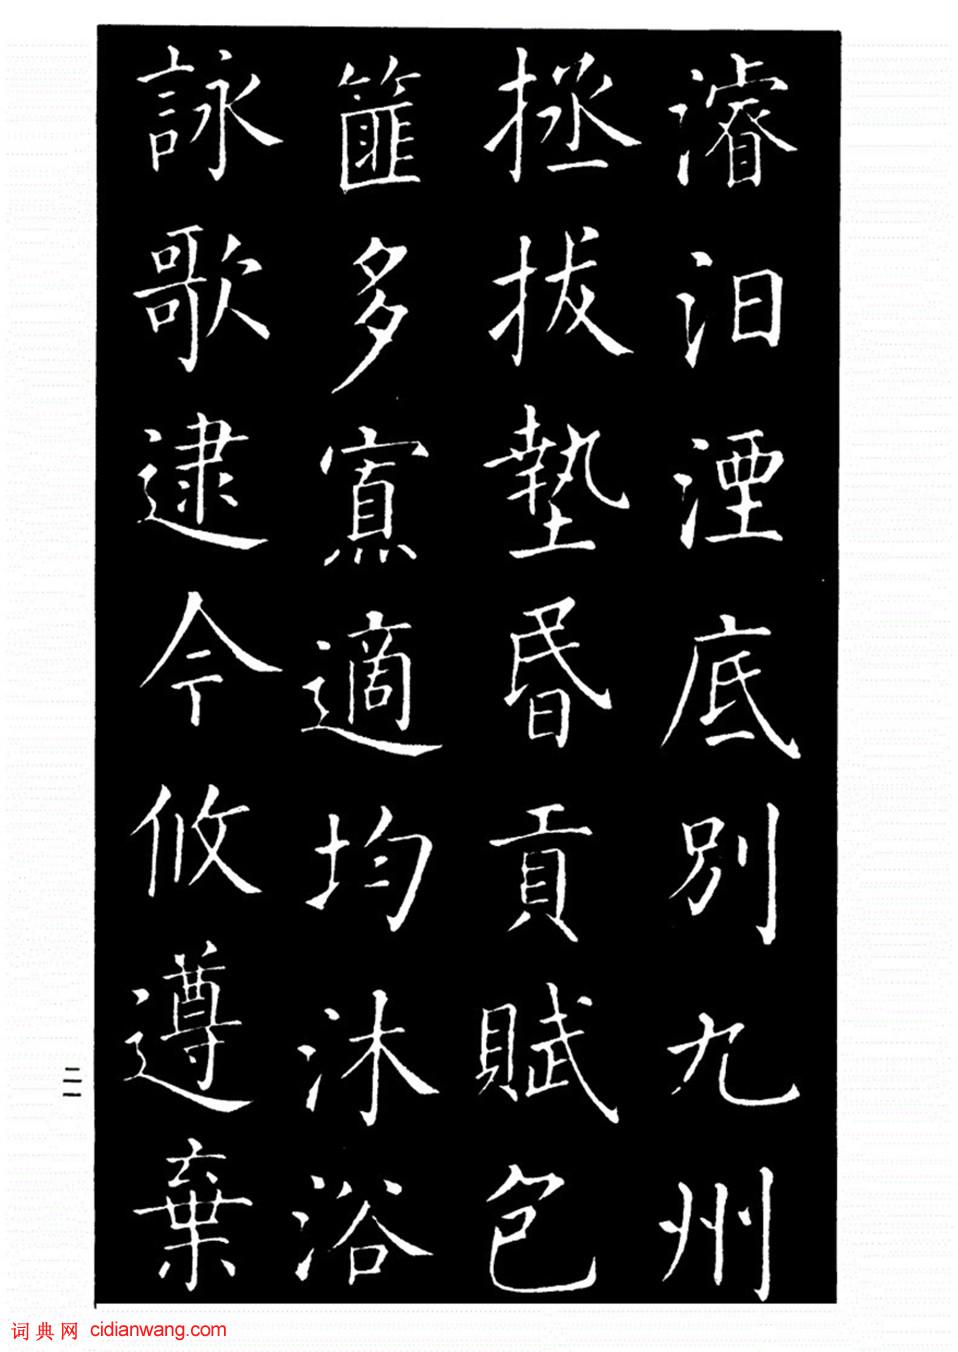 濬汩湮底別九州
拯拔墊昬貢賦包
篚多寡適均沐浴
詠歌逮今攸遵棄
二一
词典网 cidianwang.com